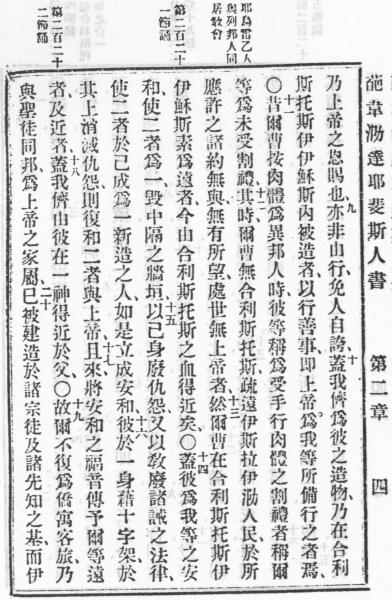 葩韋泐達耶斐斯人書 第二章 四
耶烏雷乙人
與列邦人同
居教會
第二百二十
一節誦
第二百二十
二節誦
乃上帝之恩賜也九亦非由行免人自誇十蓋我儕爲彼之造物乃在合利
斯托斯伊伊穌斯内被造者以行善事即上帝爲我等所備行之者焉
○十一昔爾曹按肉體爲異邦人時彼等稱爲受手行肉體之割禮者稱爾
等爲未受割禮十二其時爾曹無合利斯托斯疏遠伊斯拉伊泐人民於所
應許之諸約無與無有所望處世無上帝者十三然爾曹在合利斯托斯伊
伊穌斯素爲遠者今由合利斯托斯之血得近矣○十四蓋彼爲我等之安
和使二者爲一毀中隔之牆垣十五以己身廢仇怨又以教廢諸誡之法律
使二者於己成爲一新造之人如是立成安和十六彼於一身藉十字架於
其上消滅仇怨則復和二者與上帝十七且來將安和之福音傳予爾等遠
者及近者十八蓋我儕由彼在一神得近於父○十九故爾不復爲僑寓客旅乃
與聖徒同邦爲上帝之家屬二十已被建造於諸宗徒及諸先知之基而伊